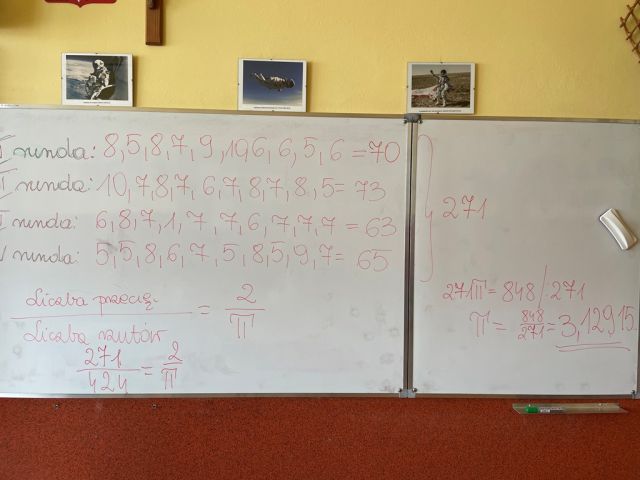 I runda: 8,5,8,7,9,10,6,6,5,6 = 70
I runda: 10,7,8,7,6,7,8,7,8,5= 73
I runda: 6,8,7,1,7,7,6,7,7,7 = 63
V runda: 5,5,8,6,7,5,8,5,9,7= 65
271
Liczba przecię. = 2
Liczba rzutów π
271 = 2
424 π
271π = 848 /:271
π = 848 = 3,12915
271